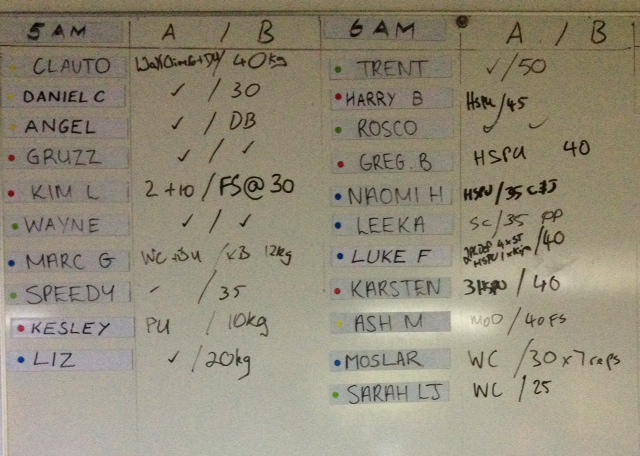 5 AM A / B
CLAUTO / 40kg
DANIEL C ✓ / 30
ANGEL ✓ / DB
GRUZZ ✓ / ✓
KIM L 2 +10 / FS@ 30
WAYNE ✓ / ✓
MARC G WC + DU / KB 12kg
SPEEDY - / 35
KESLEY PU / 10kg
LIZ ✓ / 20kg
6 AM A / B
TRENT ✓ / 50
HARRY B HSPU / 45
ROSCO ✓ ✓
GREG. B HSPU 40
NAOMI H HSPU / 35 C&J
LEEKA SC / 35 PP
LUKE F / 40
KARSTEN 3 HSPU / 40
ASH M MOD / 40 FS
MOSLAR WC / 30 x 7 reps
SARAH LJ WC / 25